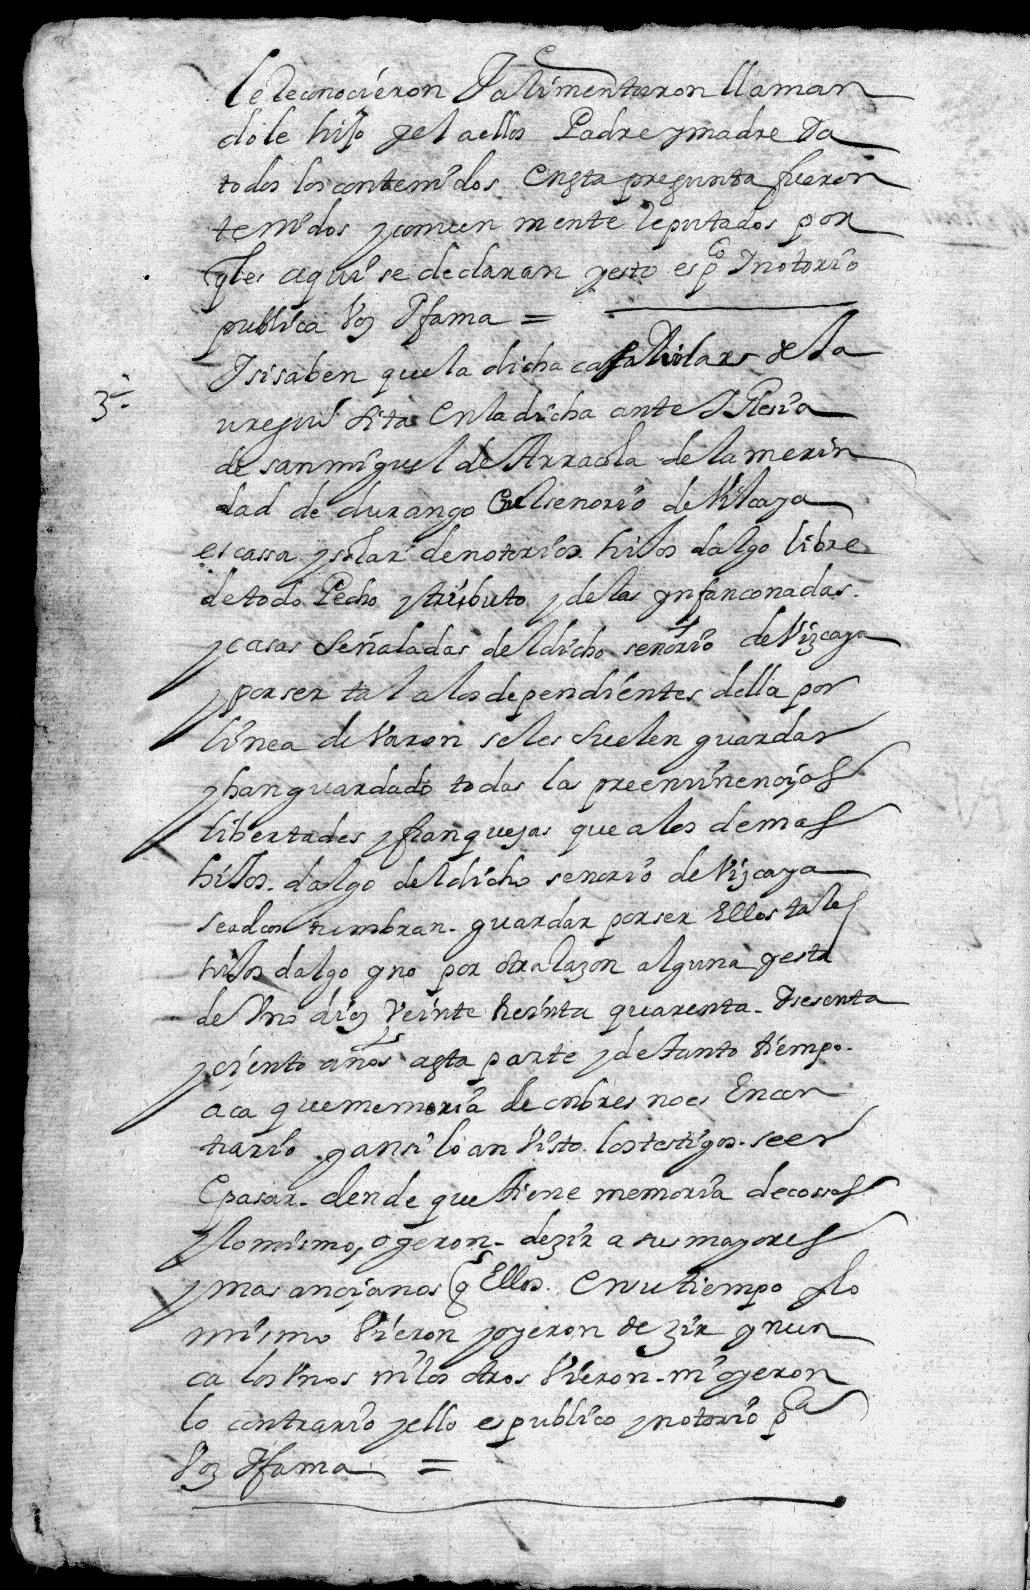 le Reconoçieron Y alimentaron llaman
dole hijo y el a ellos Padre y madre Y a
todos los contenidos en esta pregunta fueron
tenidos y comun mente Reputados por
tales aqui se declaran y esto es pco Y notorio
publica voz Y fama =
3ª
Y si saben que la dicha cassa solar de
uregui sita en la dicha ante Y glesia
de san miguel de Arraçola de la merin
dad de durango en el senorio de Vizcaya
es cassa y solar de notorios hijos dalgo libre
de todo Pecho y tributo y de las ynfanconadas
y casas señaladas del dicho señorio de Vizcaya
y por ser tal a los dependientes della por
linea de Varon se les suelen guardar
y han guardado todas las preeminençias
libertades y franquezas que a los demas
hijos dalgo del dicho senorio de Vizcaya
se acostumbran guardar por ser Ellos tales
hijos dalgo y no por otra Razon alguna y esto
de Uno diez Veinte treinta quarenta Y sesenta
y çiento años a esta parte y de tanto tiempo
aca que memoria de onbres no es En con
trario y ansi lo an Visto los testigos seer
e pasar dende que tiene memoria de cossas
y lo mismo oyeron dezir a sus mayores
y mas ançianos q Ellos en su tiempo y lo
mismo Vieron y oyeron dezir y nun
ca los Unos ni los otros Vieron ni oyeron
lo contrario y ello es publico y notorio pca
Voz Y fama =